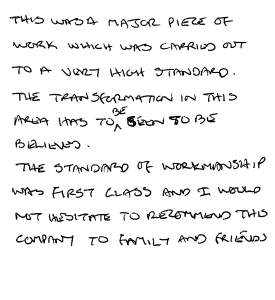 THIS WAS A MAJOR PIECE OF
WORK WHICH WAS CARRIED OUT
TO A VERY HIGH STANDARD.
THE TRANSFORMATION IN THIS
AREA HAS TO BE SEEN TO BE
BELIEVED.
THE STANDARD OF WORKMANSHIP
WAS FIRST CLASS AND I WOULD
NOT HESITATE TO RECOMMEND THIS
COMPANY TO FAMILY AND FRIENDS